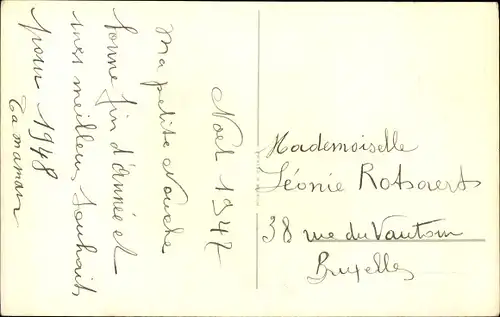 Noël 1947
Ma petite Nouche
bonne fin d'année et
mes meilleurs souhaits
pour 1948
Ta maman
Mademoiselle
Léonie Rotsaert
38 rue du Vautour
Bruxelles